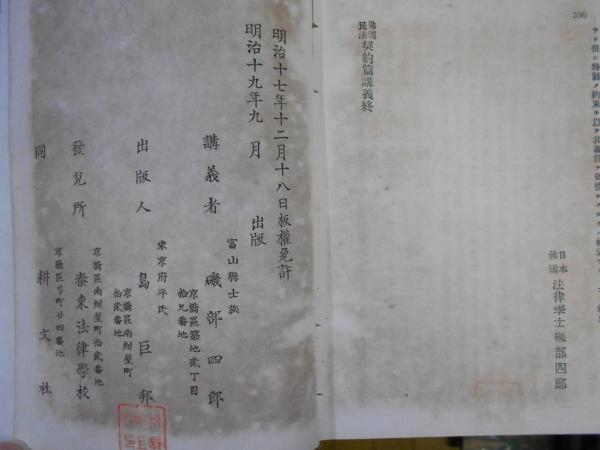 390
佛國民法契約篇講義終
日本佛國法律學士磯部四郎
明治十七年十二月十八日板權免許
明治十九年九月
出版
富山縣士族
講義者 磯部四郎
京橋區築地貳丁目
拾九番地
東京府平民
出版人 島巨邦
京橋區南紺屋町
拾貳番地
京橋區南紺屋町拾貳番地
發兌所 泰東法律學校
京橋區弓町廿四番地
同 耕文社